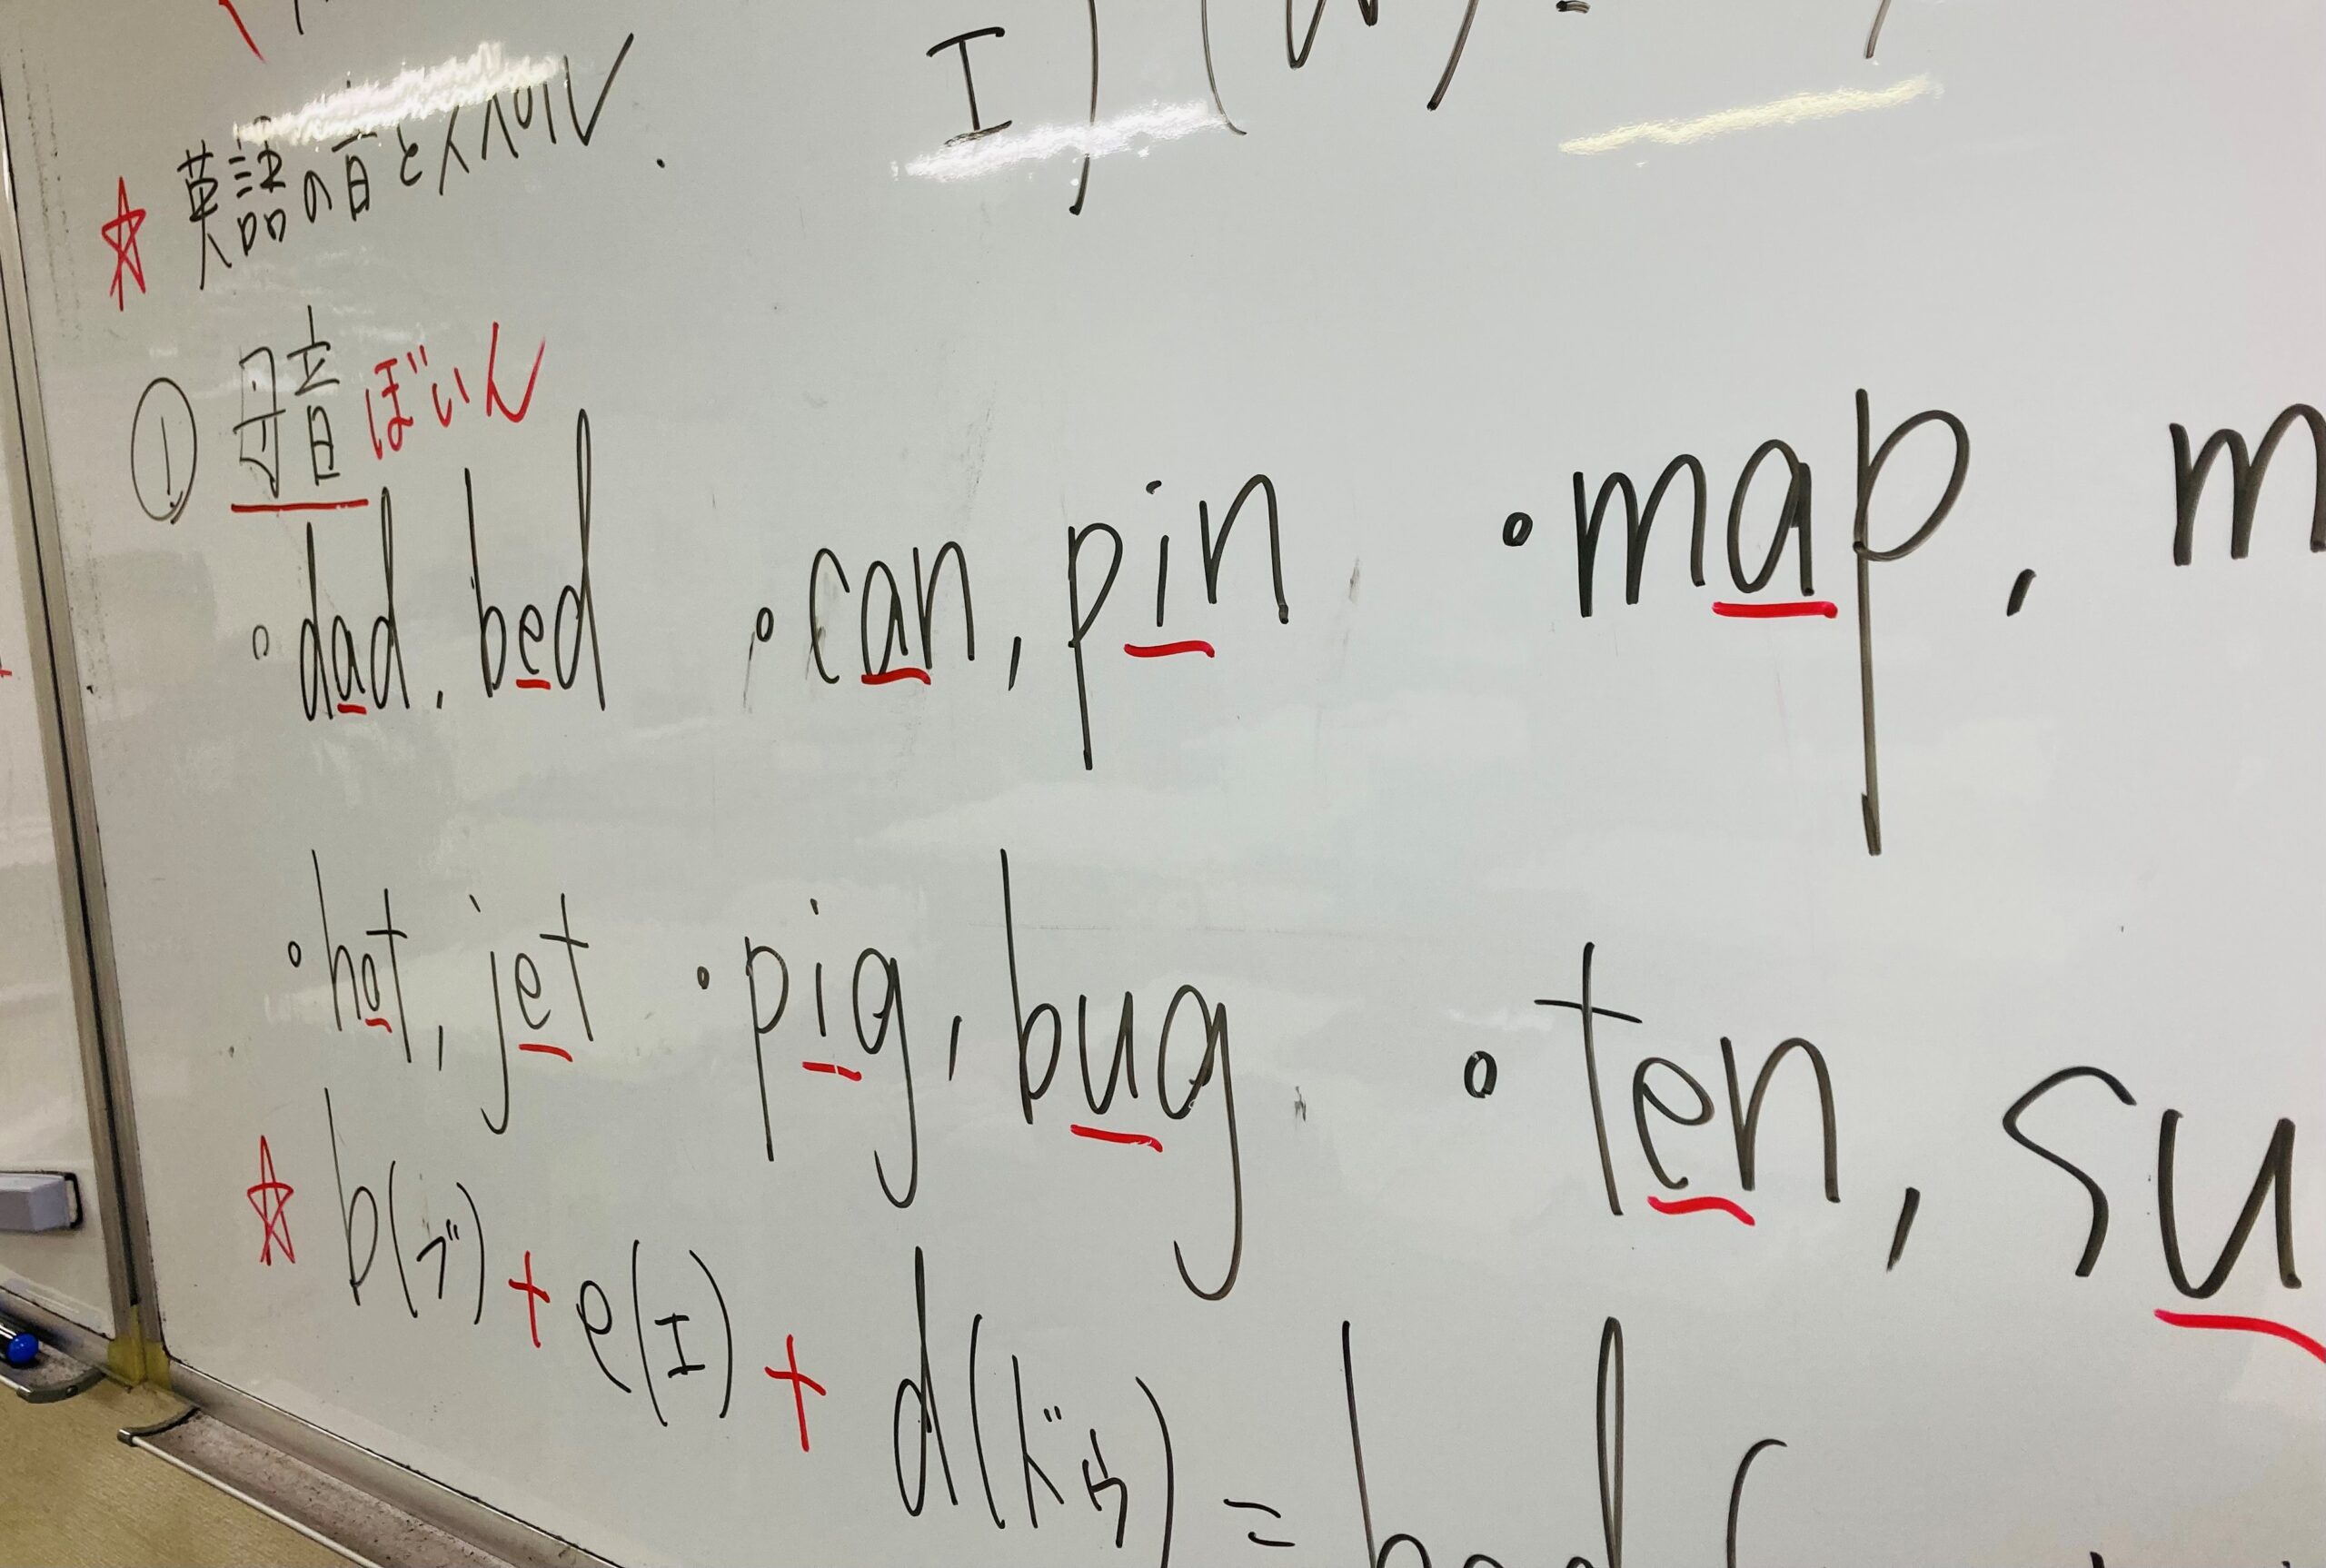 ☆ 英語の音とスペル.
① 母音 ぼいん
・dad, bed ・can, pin ・map, m
・hot, jet ・pig, bug ・ten, su
☆ b(ブ) + e(エ) + d(ドゥ) = bed (